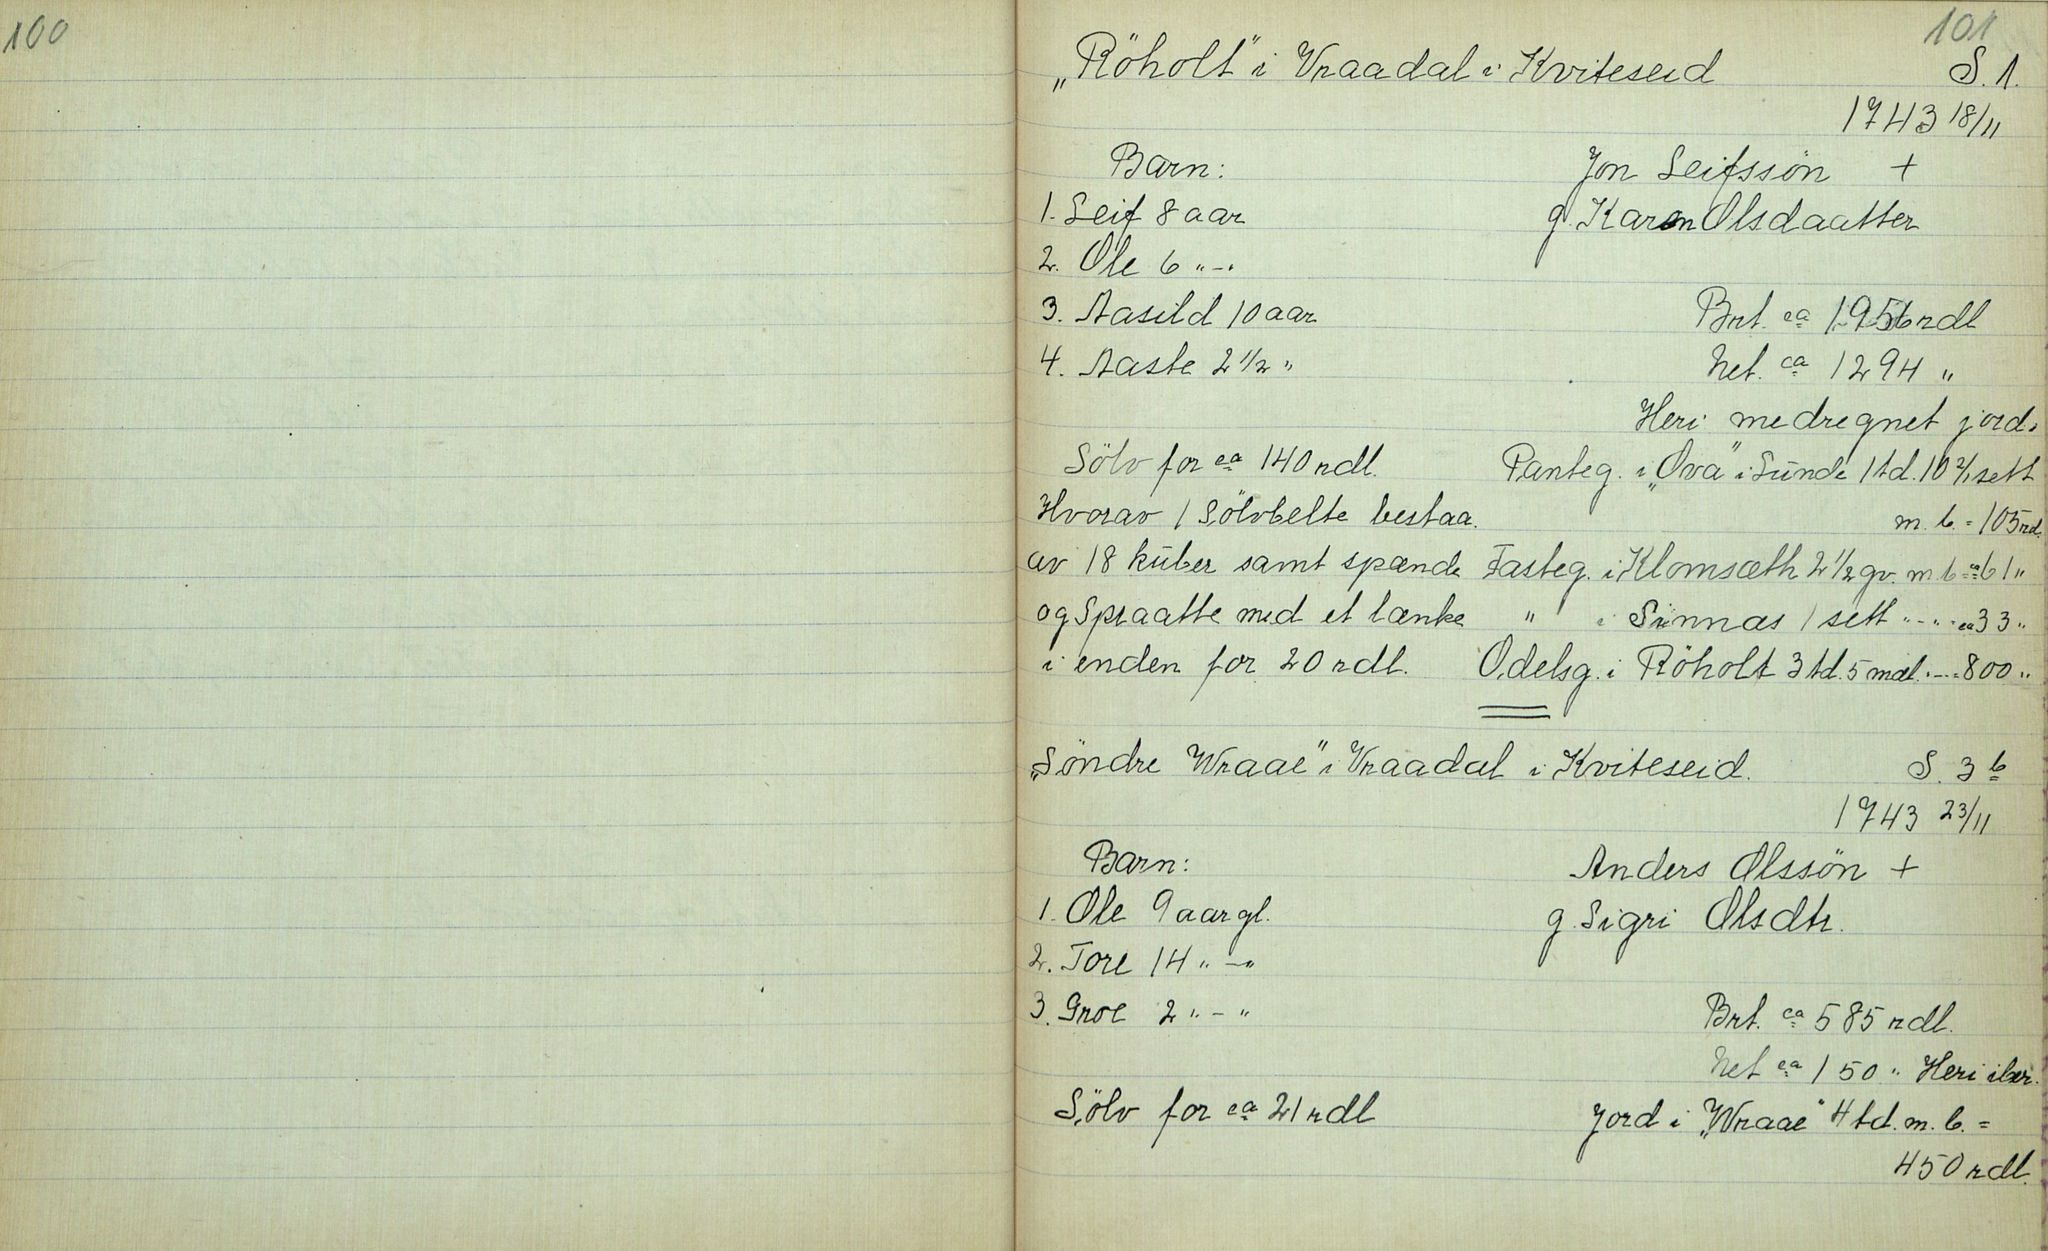 100
101
„Röholt" i Vraadal i Kviteseid S. 1.
1743 18/11
Barn: Jon Leifssön +
1. Leif 8 aar g. Karen Olsdaatter
2. Ole 6 " - "
3. Aasild 10 aar Brt. ca 1956 rdl
4. Aaste 2 1/2 " Net. ca 1294 "
Heri medregnet jord.
Sölv for ca 140 rdl. Panteg. i „Ova" i Sunde 1 td. 10 2/1 sett
Hvorav 1 Sölvbelte bestaa. m. b. = 105 rd.
av 18 kuber samt spænde Fasteg. i Klomsæth 2 1/2 gv. m. b = ca 61 "
og Spraatte med et lænke " i Sinnæs 1 sett " - " - ca 33 "
i enden for 20 rdl. Odelsg. i Röholt 3 td. 5 mæl. " - " - 800 "
„Söndre Wraae" i Vraadal i Kviteseid. S. 3 b
1743 23/11
Barn: Anders Olssön +
1. Ole 9 aar gl. g. Sigri Olsdtr.
2. Tore 14 " - "
3. Groe 2 " - " Brt. ca 585 rdl.
Net ca 150 " Heri iber.
Sölv for ca 21 rdl Jord i „Wraae" 4 td. m. b. =
450 rdl.